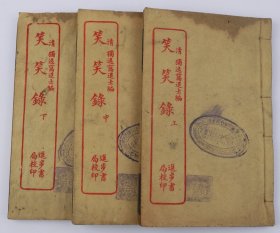 清 獨逸窩退士編
笑笑錄 上
進步書
局校印
清 獨逸窩退士編
笑笑錄 中
進步書
局校印
清 獨逸窩退士編
笑笑錄 下
進步書
局校印